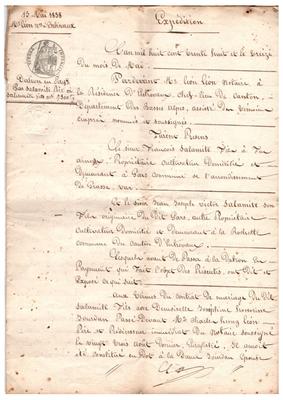 15 Mai 1838
Me Léon nre Entrevaux
Expédition
L'an mil huit cent trente huit et le treize
du mois de Mai.
Pardevant Me Léon Léon Notaire à
la Résidence d'Entrevaux chef-lieu de Canton,
Département des Basses Alpes, assisté des témoins
ci-après nommés et soussignés.
Dation en Paye
Par Salamite Père à
Furent Présens
Le sieur François Salamite Fils à feu
Propriétaire Cultivateur Domicilié et
Demeurant à Gars commune de l'arrondissement
de Grasse, Var;
Et le sieur Jean Joseph Victor Salamite son
Fils originaire du dit Gars, autre Propriétaire
Cultivateur Domicilié et Demeurant à la Rochette
commune du Canton d'Entrevaux.
Lesquels avant de Passer à la Dation en
Payement qui fait l'objet des Présentes, ont Dit et
Exposé ce qui suit
Aux termes du contrat de mariage du Dit
Salamite Fils avec Demoiselle Joséphine
Jourdan Passé Devant Me Charles Léon
Père et Prédécesseur immédiat du Notaire soussigné
le vingt trois août dernier, Enregistré,
été constitué en Dot à la Dame Jourdan Epouse